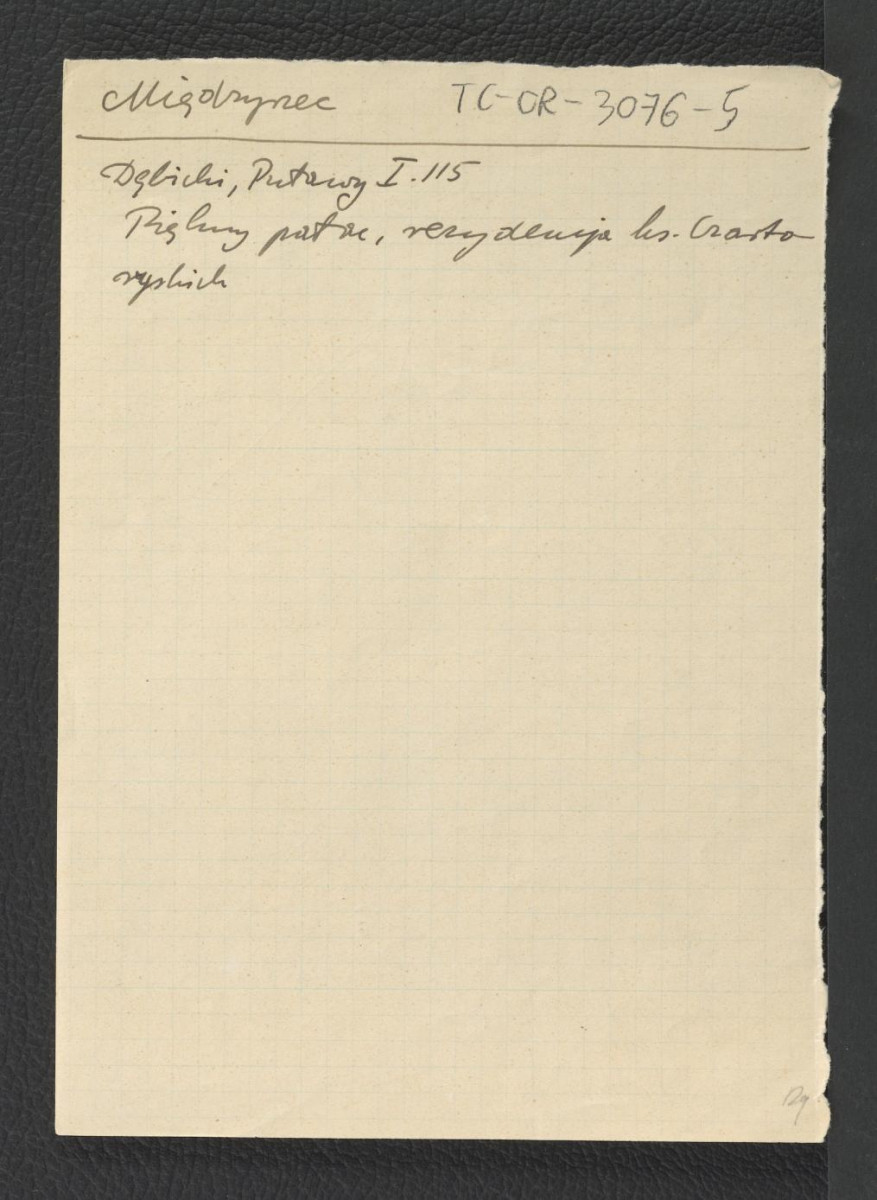 Międzyrzec TC-OR-3076-5
Dębicki, Puławy I. 115
Piękny pałac, rezydencja ks. Czarto
ryskich